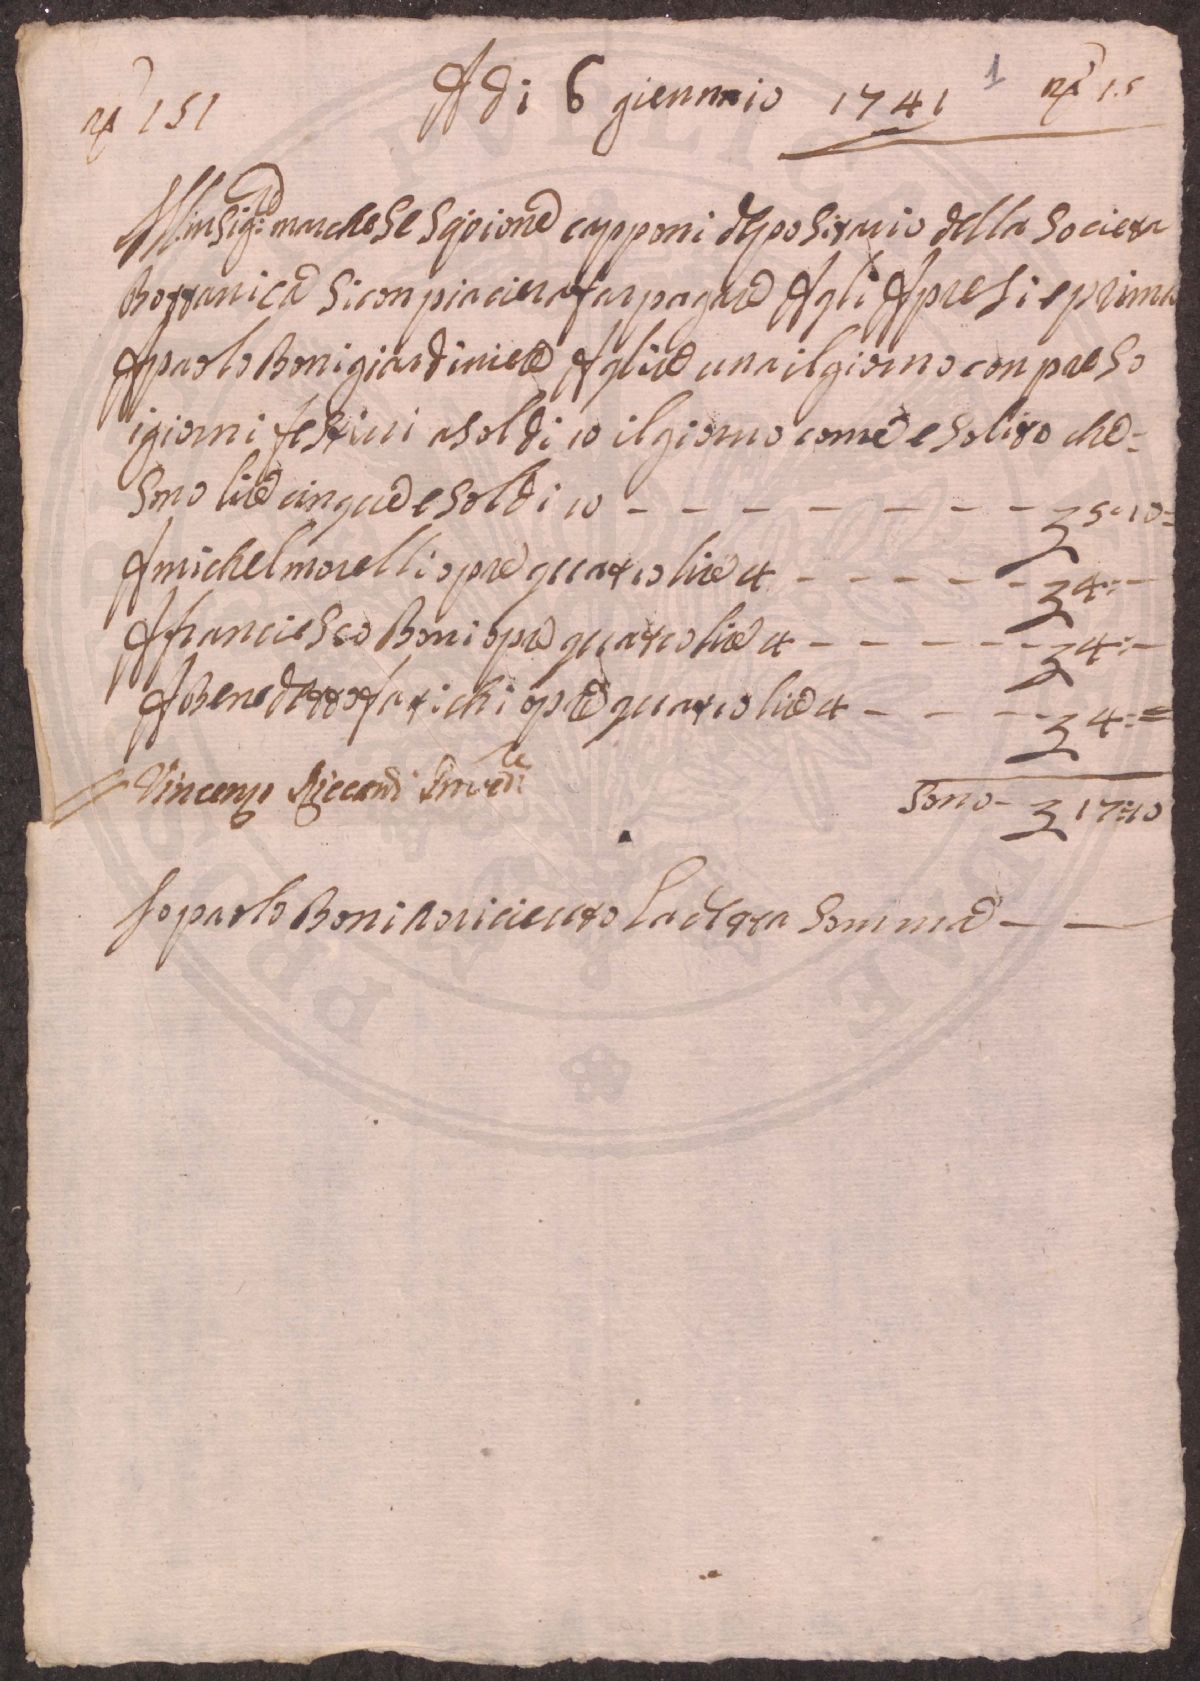 nº 151 A di 6 giennaio 1741 1 nº 15
Ill:mo Sig:re marchese Sgipione capponi depositario della Societa
Bottanica Si conpiaciera far pagare Agli Apresi e prima
A paolo Boni giardiniere A lire una il giorno conpreso
i giorni festiui a soldi 10 il giorno come e solito che=
Sono lire cinque e soldi 10 - - - - - - - - 5:10=
A michel morelli opre quatro lire 4 - - - - - - 4:=-
A franciesco Boni opre quatro lire 4 - - - - - - 4:-
A Benedetto fatichi opre quatro lire 4 - - - - 4:=
Vincenzo Riccardi Proved:re
Sono- 17:10
Io paolo Boni o riceuto La detta Somma - -